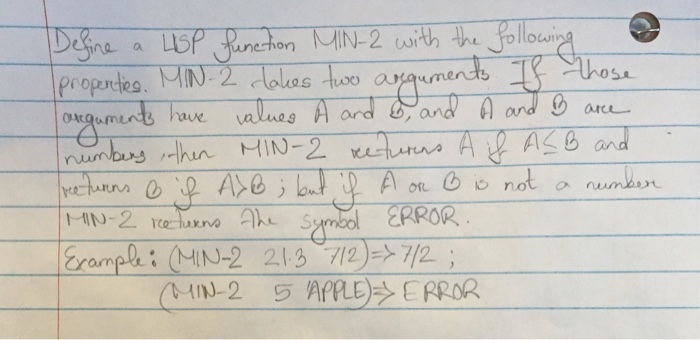 Define a LISP function MIN-2 with the following
properties. MIN-2 takes two arguments. If those
arguments have values A and B, and A and B are
numbers, then MIN-2 returns A if A≤B and
returns B if A>B; but if A or B is not a number
MIN-2 returns the symbol ERROR.
Example: (MIN-2 21.3 7/2)=>7/2;
(MIN-2 5 'APPLE)=>ERROR